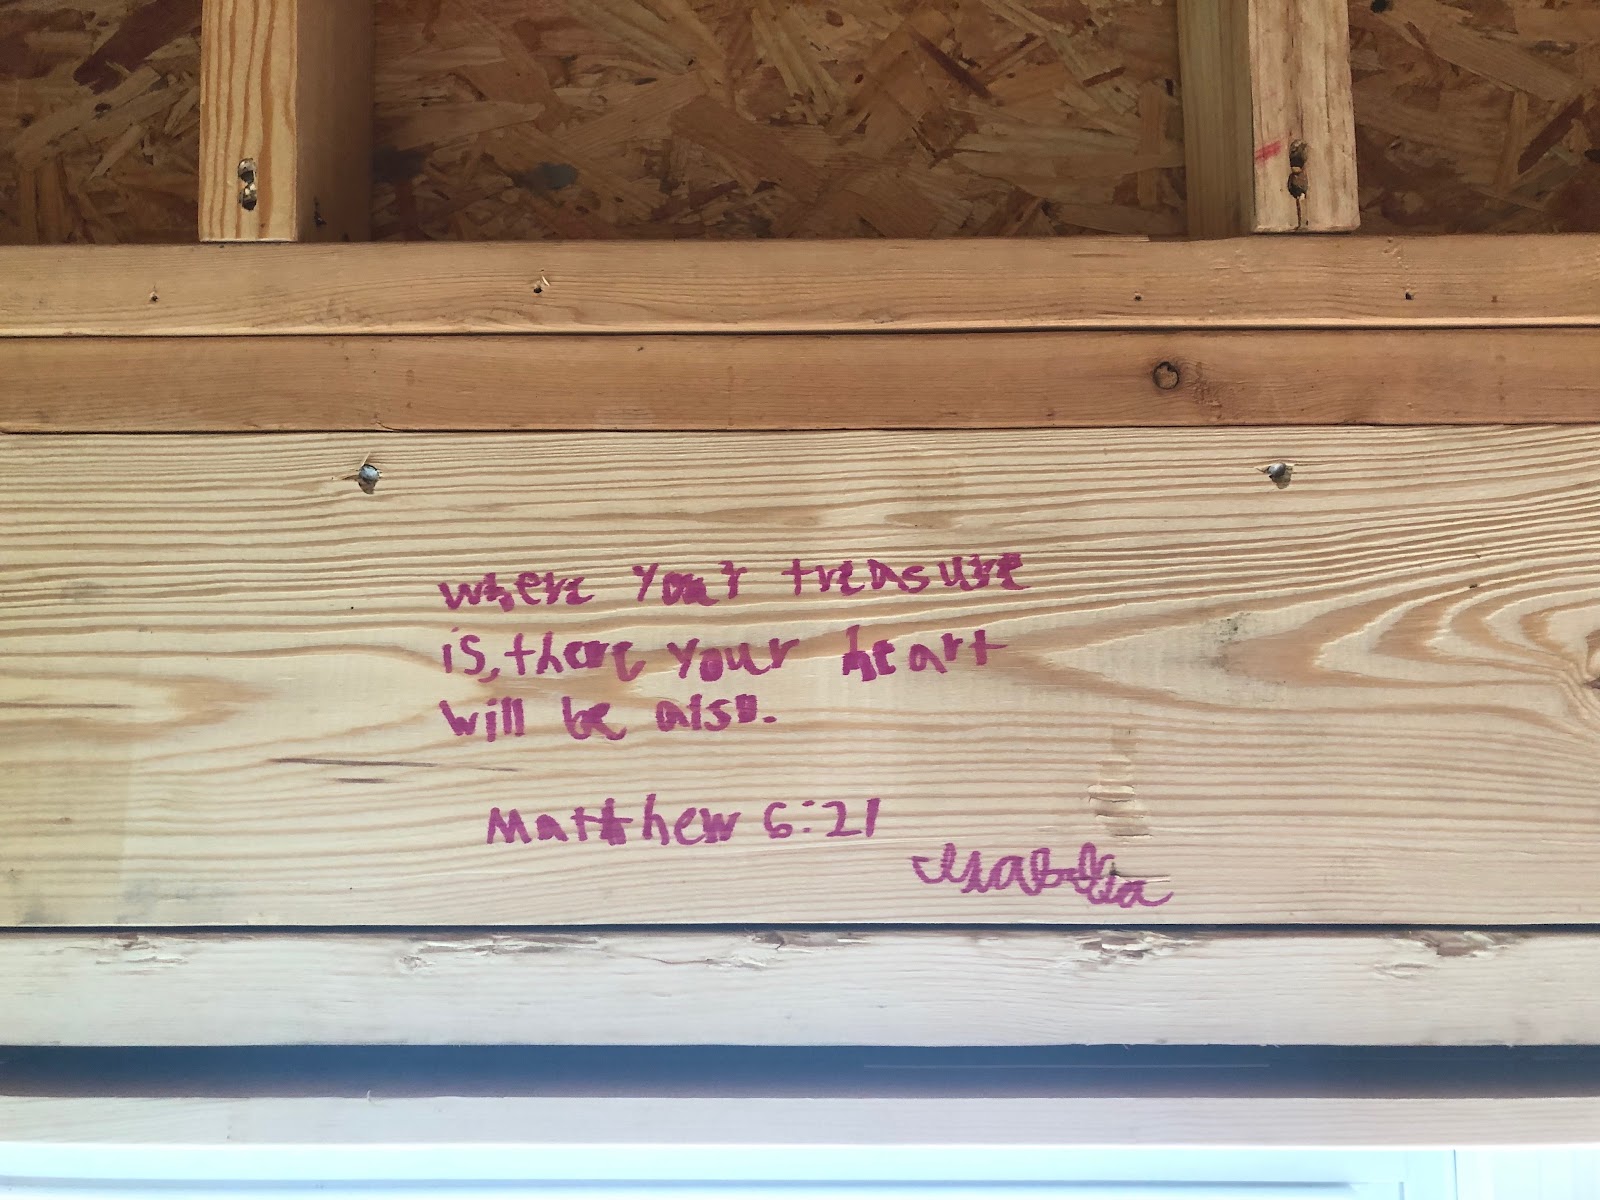 where your treasure
is, there your heart
will be also.
Matthew 6:21
Isabella